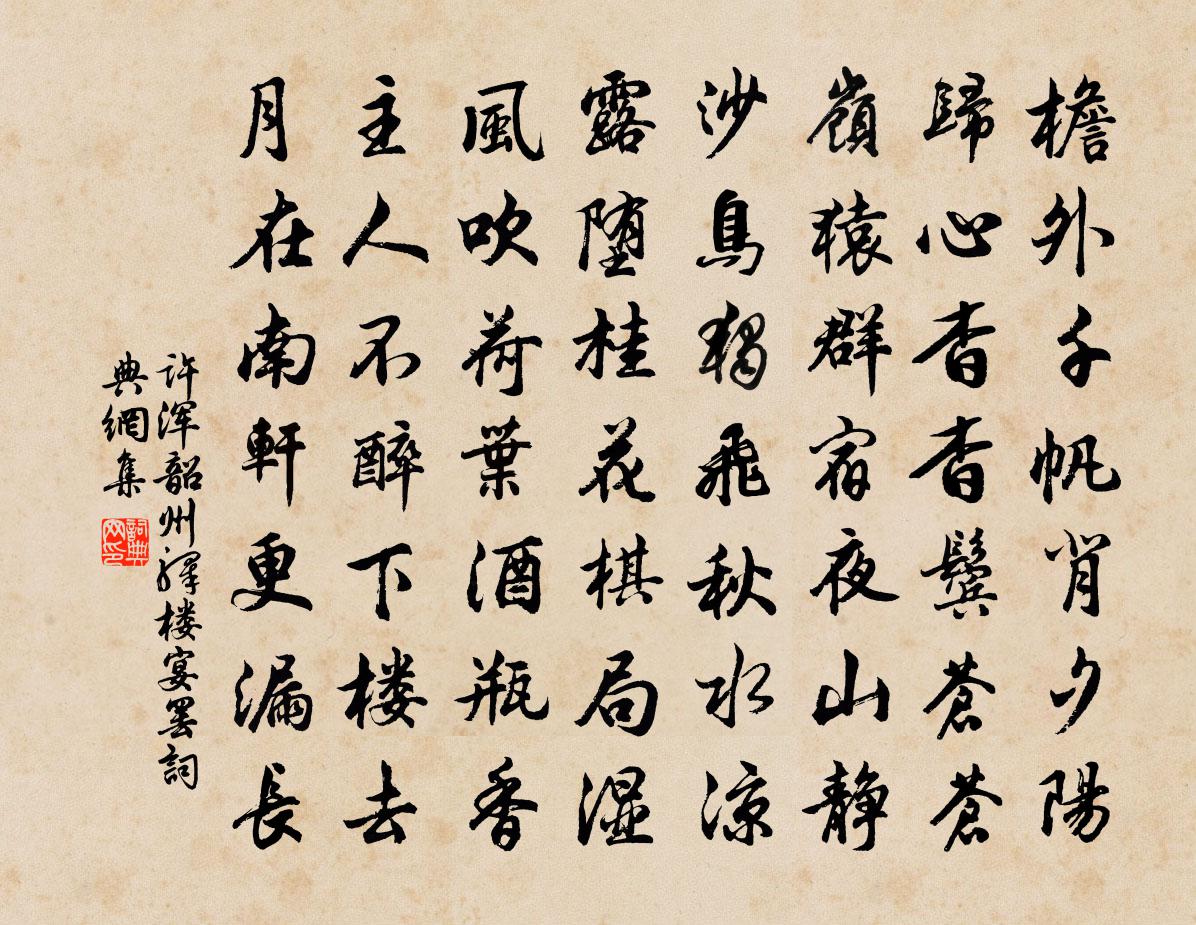 檐外千帆背夕陽
歸心杳杳鬢蒼蒼
嶺猿群宿夜山靜
沙鳥獨飛秋水涼
露墮桂花棋局濕
風吹荷葉酒瓶香
主人不醉下樓去
月在南軒更漏長
許渾韶州驛樓宴罷詞
典網集
詞典
网印